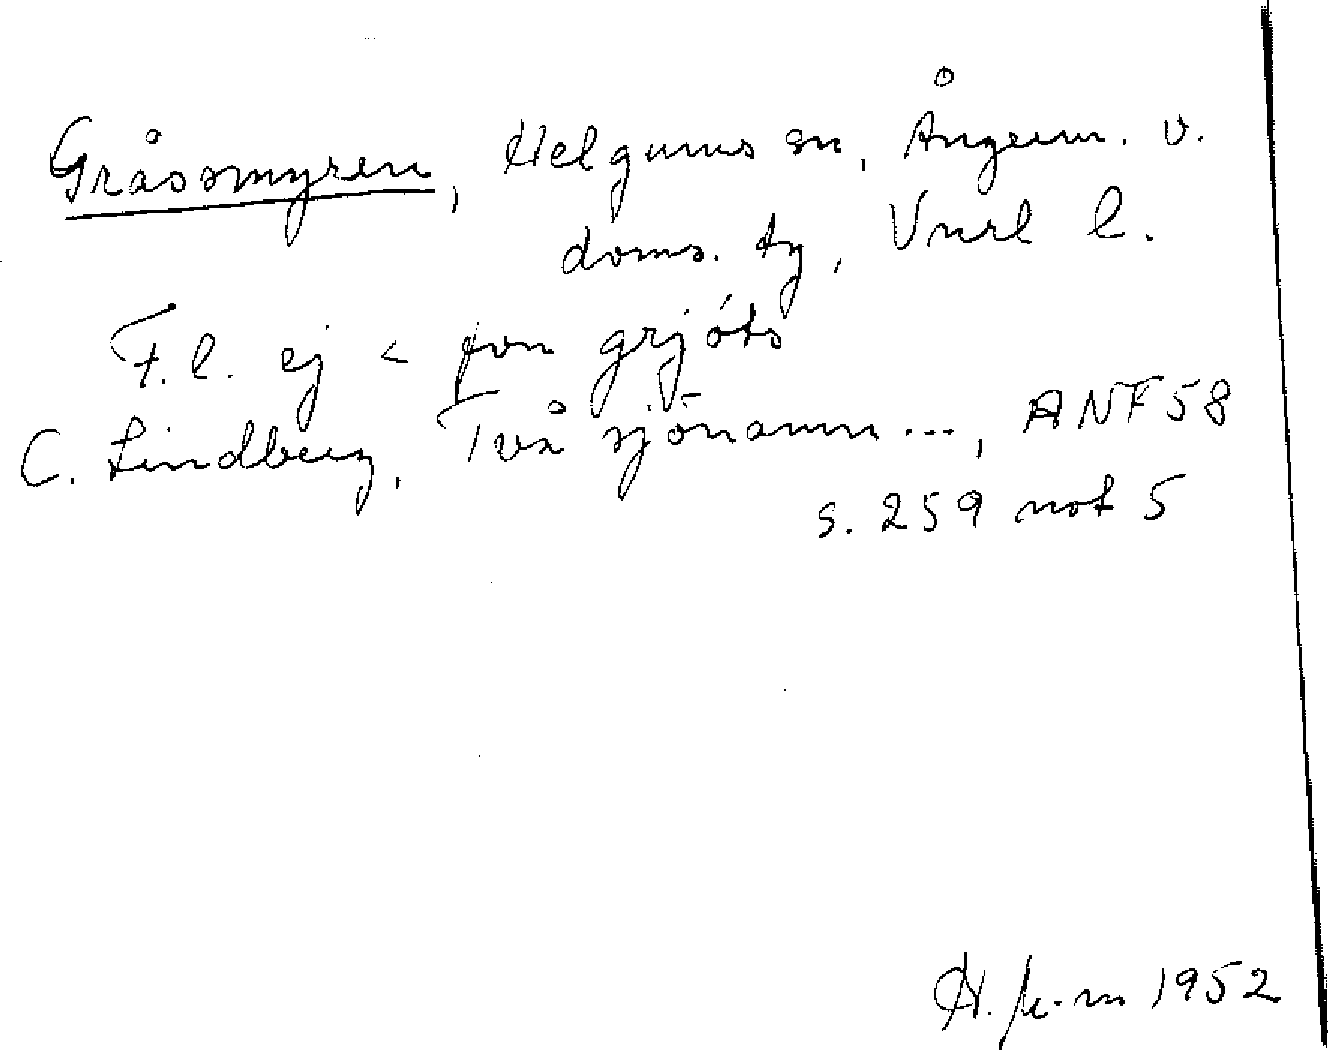 Gråssmyren, Helgums sn, Ångerm. v.
doms. ty, Vnrl l.
F.l. ej < fvn grjóts
C. Lindberg, Två sjönamn ..., ANF 58
s. 259 not 5
1952